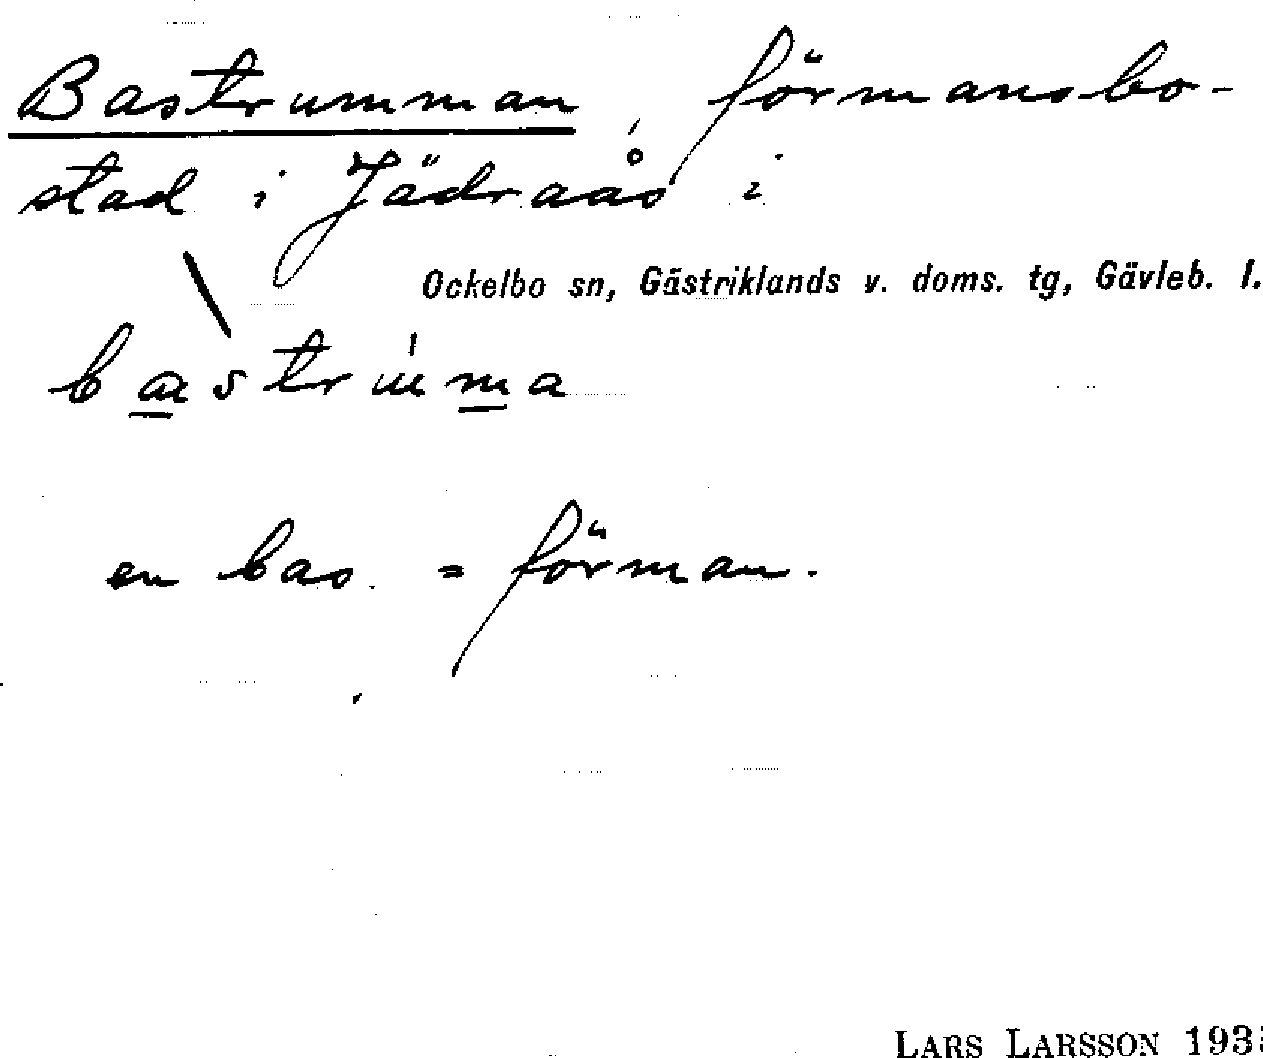 Bastrumman, förmansbo-
stad i Jädraås i
Ockelbo sn, Gästriklands v. doms. tg, Gävleb. l.
bastruma
en bas = förman.
LARS LARSSON 193